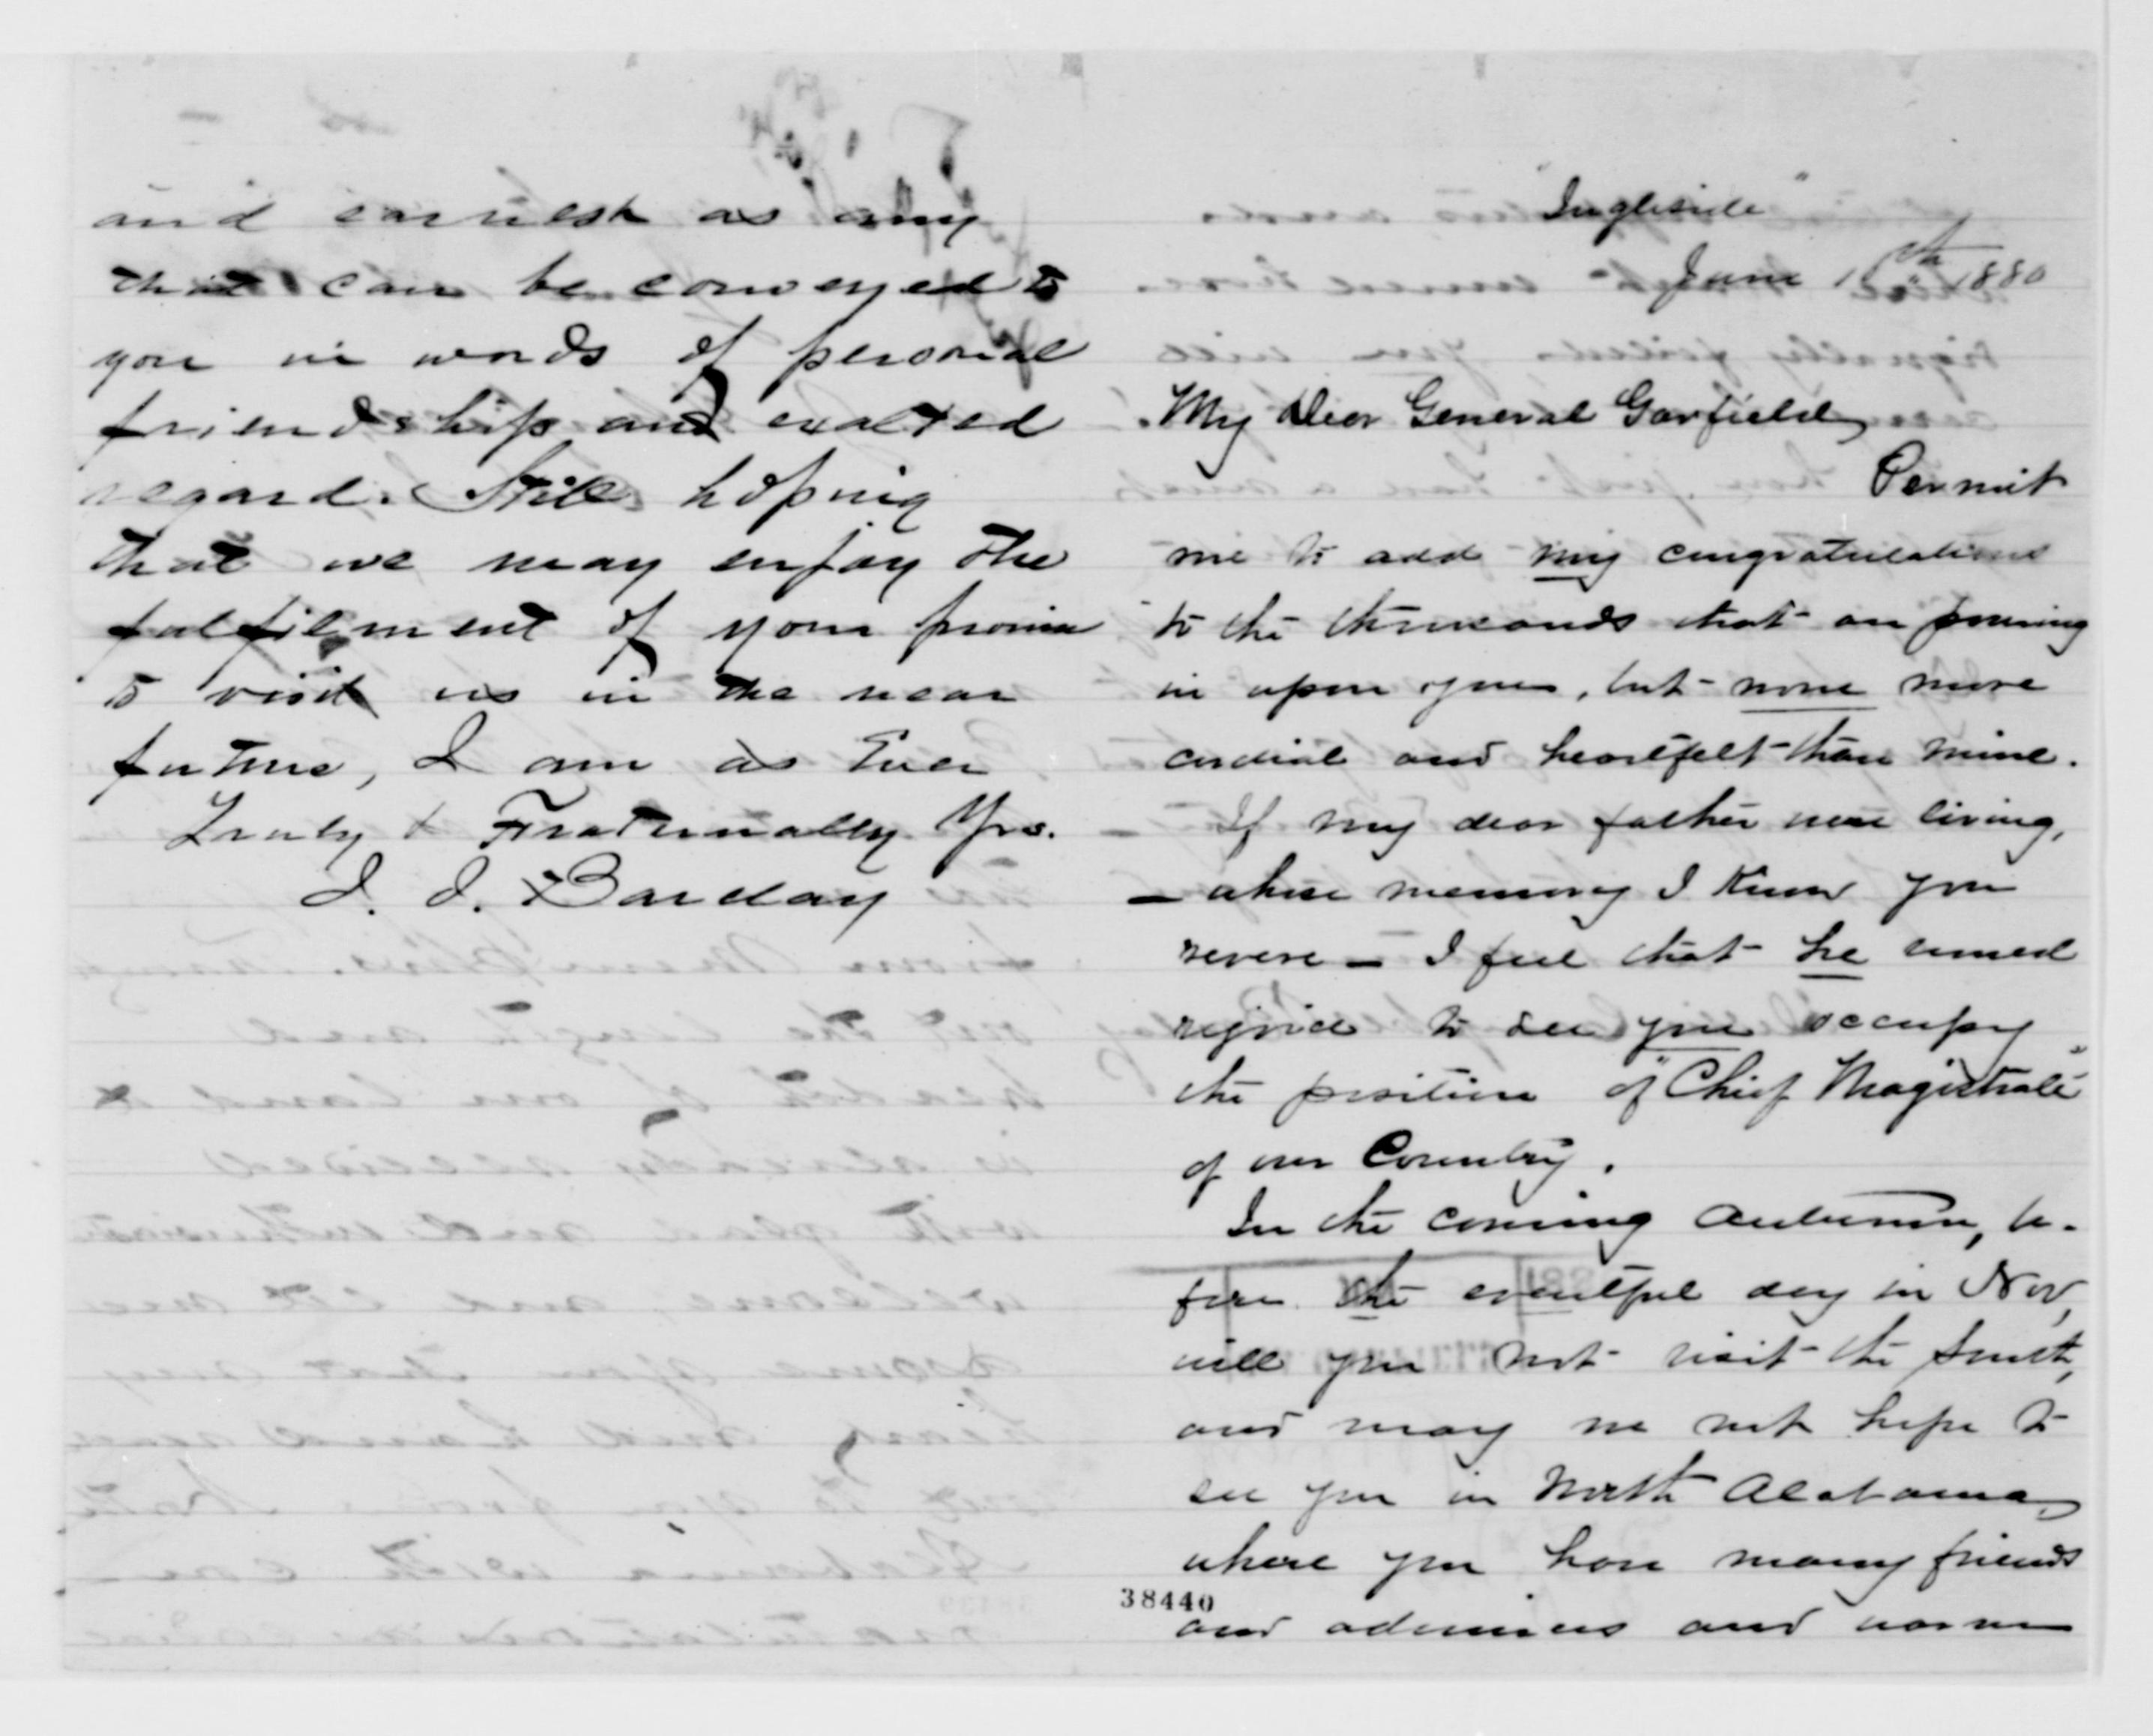 and earnest as any
that can be conveyed to
you in words of personal
friendship and exalted
regard. Still hoping
that we may enjoy the
fulfilment of your promise
to visit us in the near
future, I am as Ever
Truly & Fraternally Yrs.
J. J. Barclay
"Ingleside"
June 1880
My Dear General Garfield,
Permit
me to add my congratulations
to the thousands that are pouring
in upon you, but none more
cordial and heartfelt than mine.
If my dear father were living,
- whose memory I know you
revere - I feel that he would
rejoice to see you occupy
the position of "Chief Magistrate"
of our Country.
In the coming Autumn, be-
fore the eventful day in Nov,
will you not visit the South,
and may we not hope to
see you in North Alabama,
where you have many friends
38440
and admirers and warm